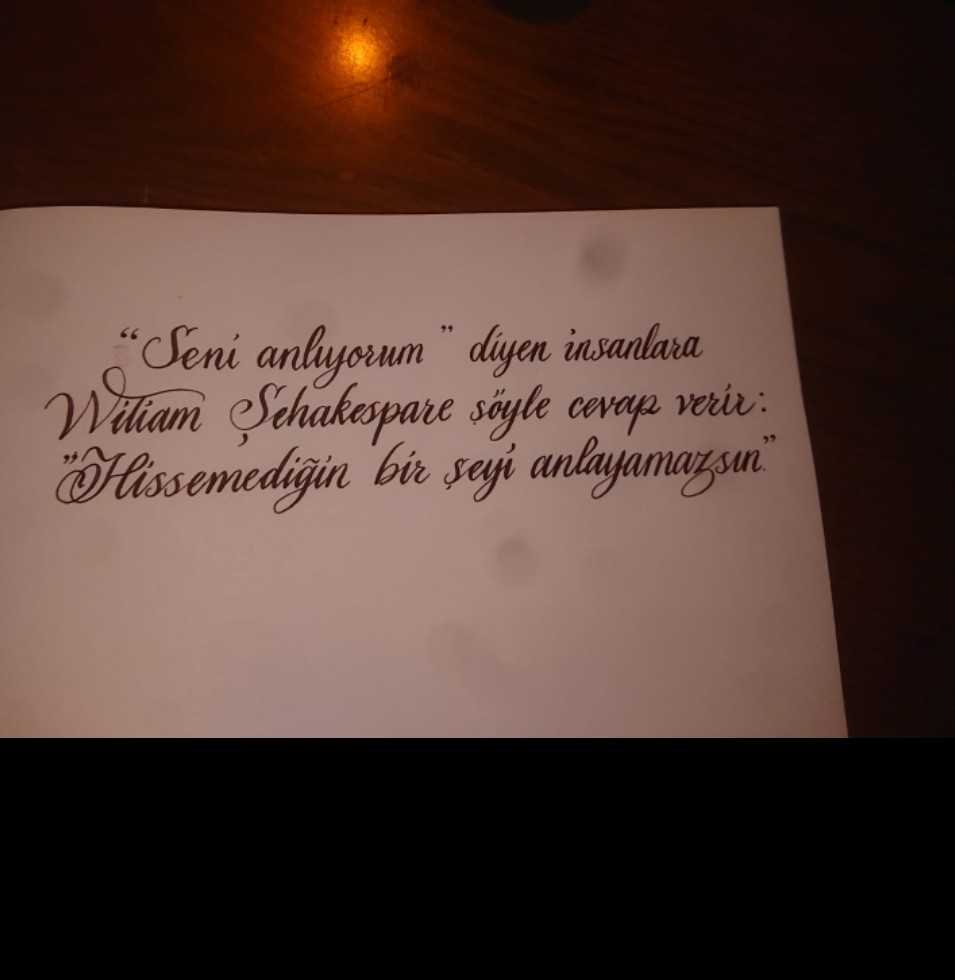 “Seni anlıyorum” diyen insanlara
Wiliam Şehakespare şöyle cevap verir:
”Hissemediğin bir şeyi anlayamazsın.”